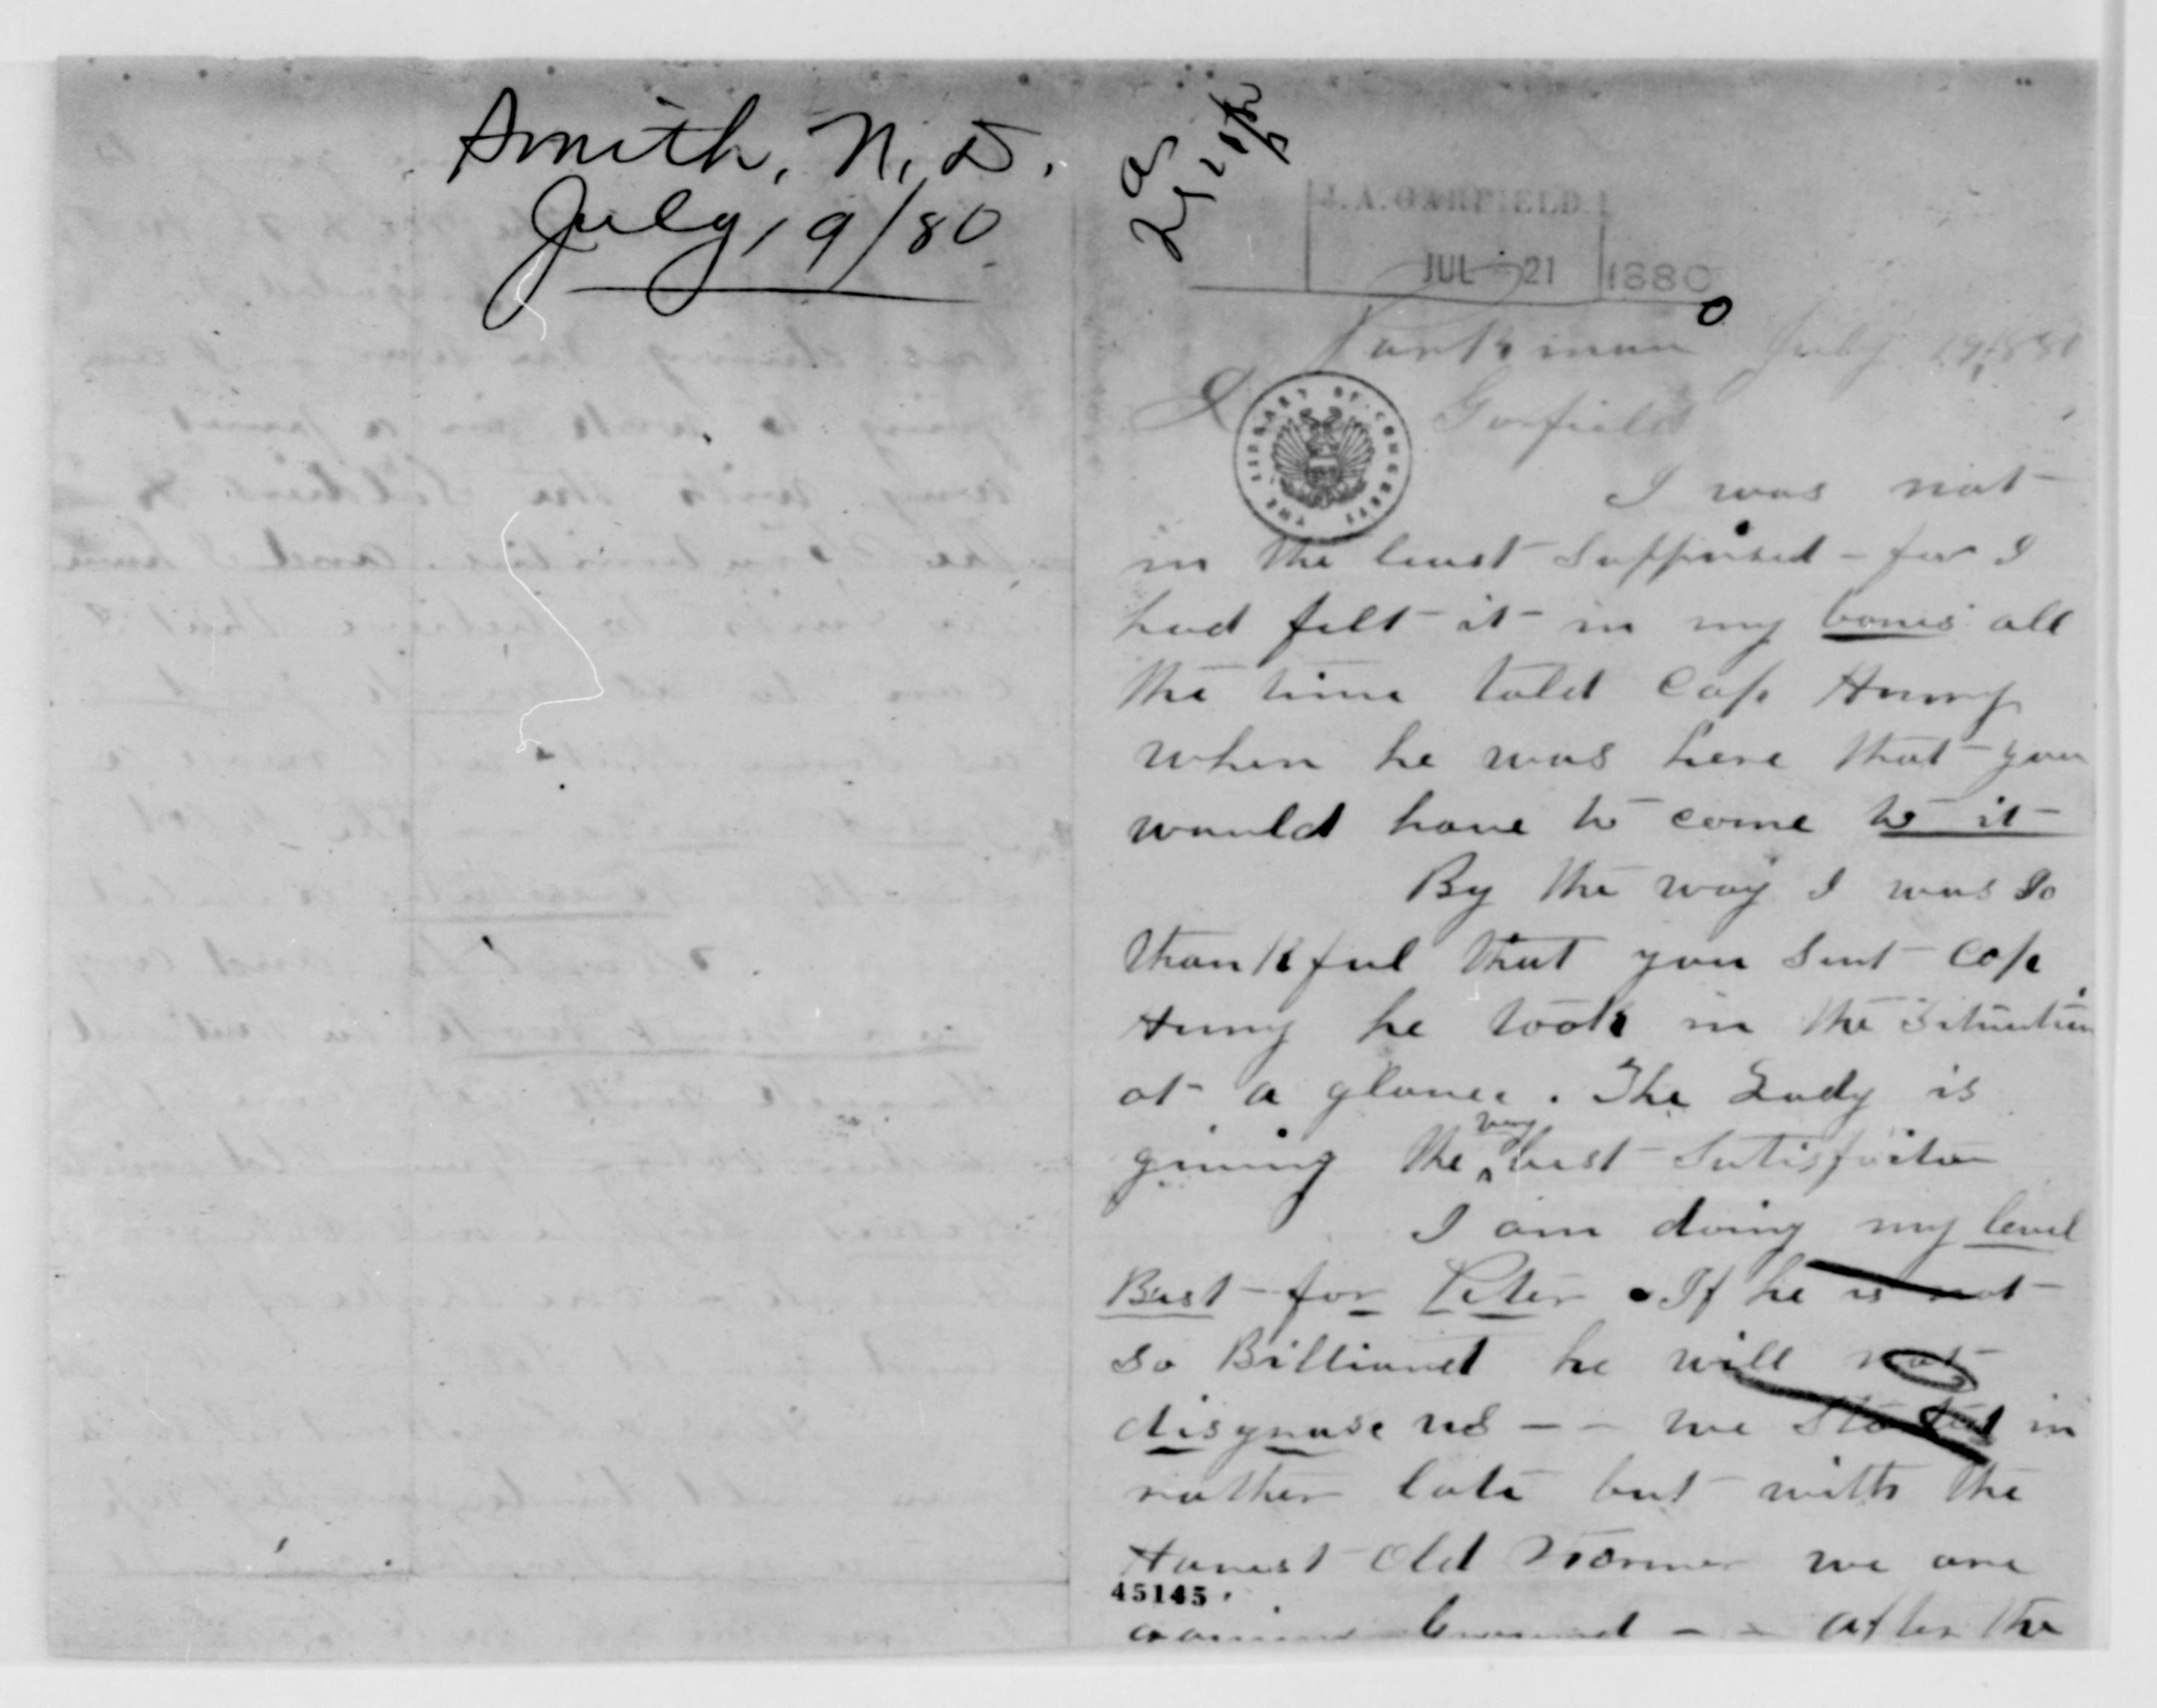 Smith, N. D.
July 19/80
J. A. GARFIELD
JUL 21 1880
Parkman July 19, 1880
Garfield
THE LIBRARY OF CONGRESS
I was not
in the least Supprised - for I
had felt it in my bones all
the time told Cap Henry
when he was here that you
would have to come to it
By the way I was So
thankful that you Sent Cap
Henry he took in the Situation
at a glance. The Lady is
giving the very best Satisfaction
I am doing my level
Best for Peter. If he is not
So Billiant he will not
disgrase us - - we Started in
rather late but with the
Honest Old Farmer we are
45145
Ground - - After the